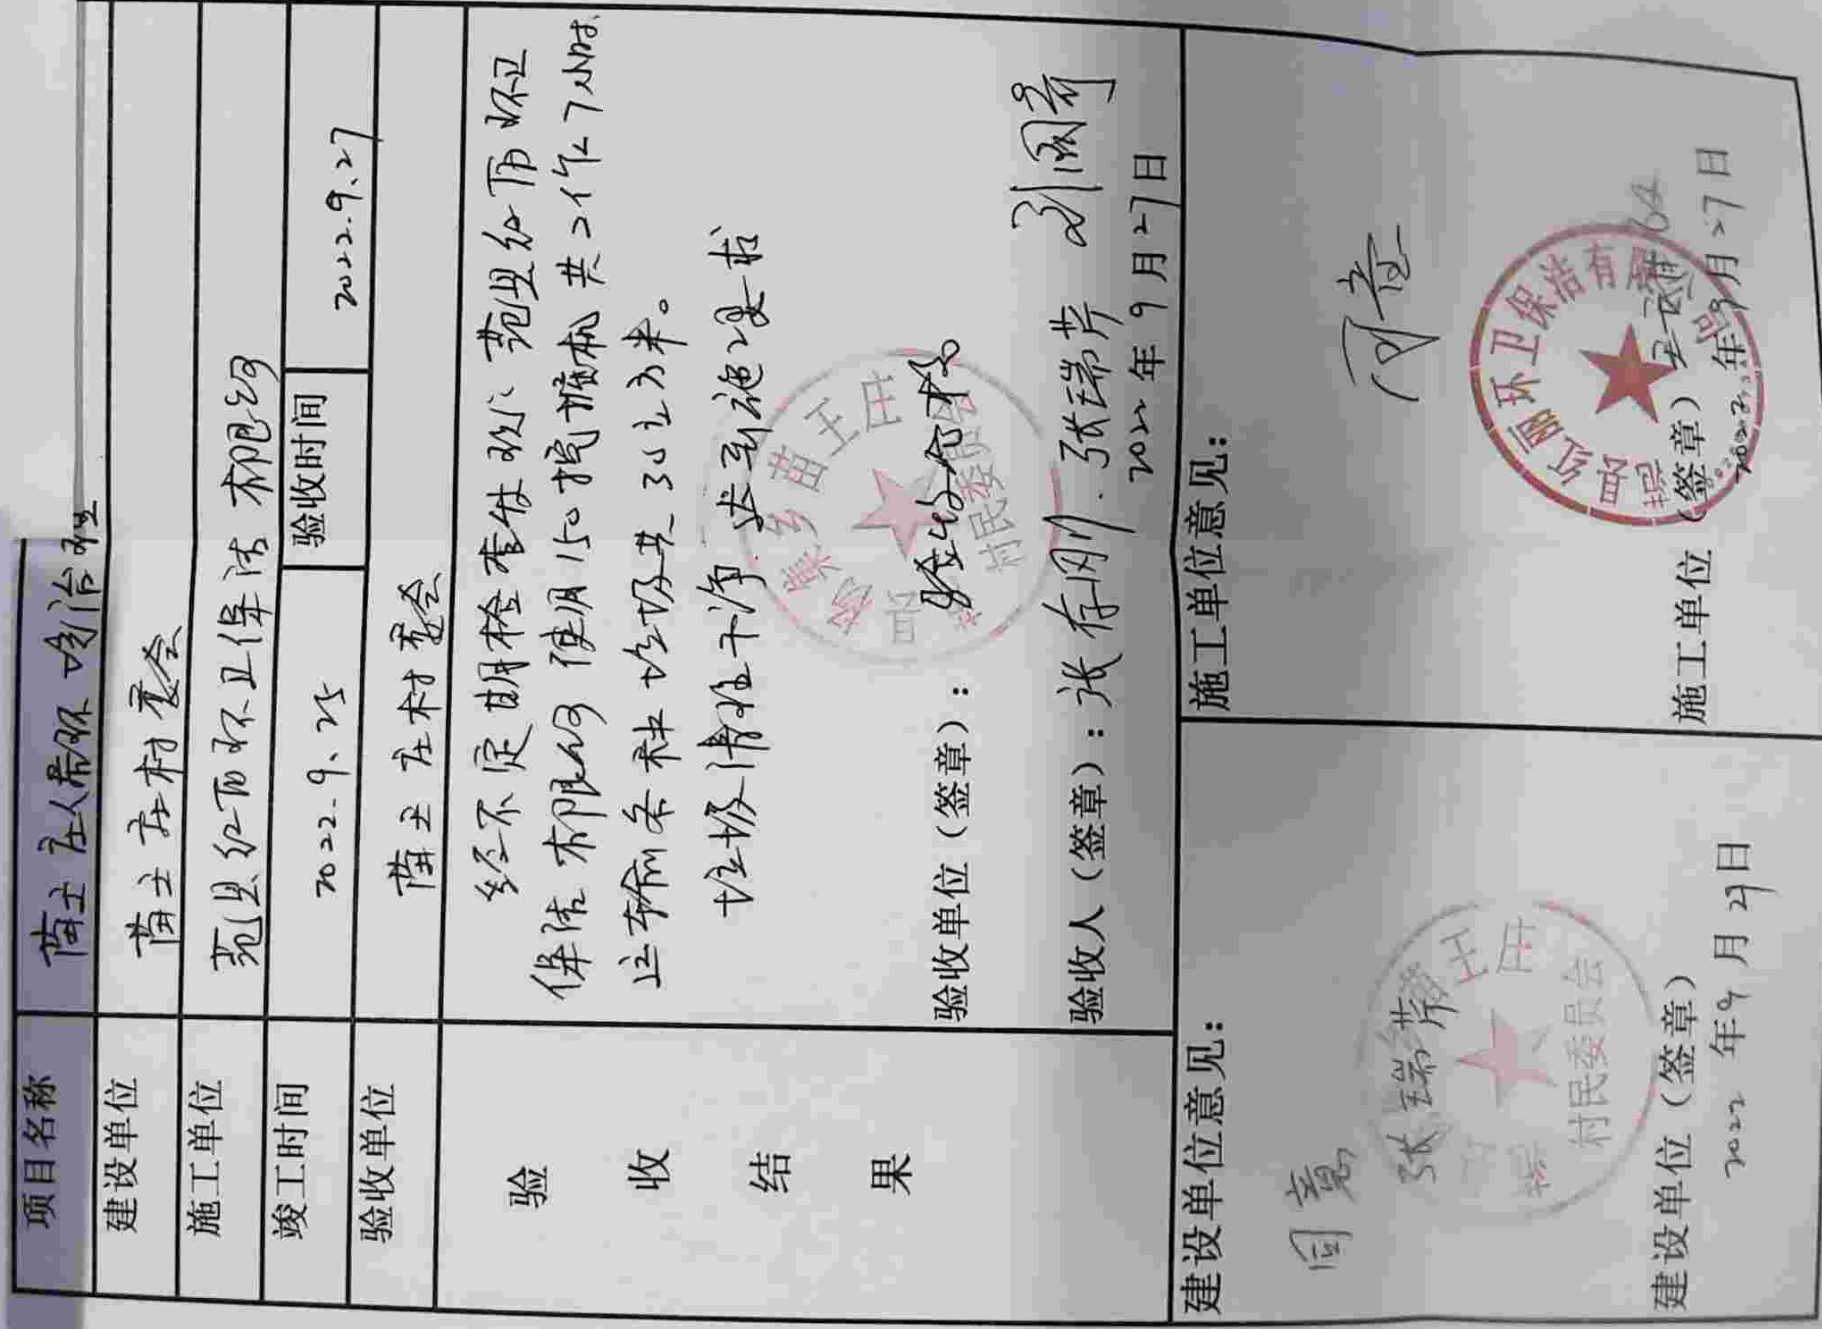 项目名称 苗王庄人居环境治理
建设单位 苗王庄村委会
施工单位 范县红丽环卫保洁有限公司
竣工时间 2022.9.25 验收时间 2022.9.27
验收单位 苗王庄村委会
验收结果
经不定期检查 范县红丽环卫
保洁有限公司使用150挖掘机共工作7小时
运输各种垃圾共30立方米。
垃圾清理干净 达到施工要求
验收单位（签章）： 验收合格
杨集乡苗王庄
村民委员会
验收人（签章）：张存刚 张瑞芹
2022年9月27日
建设单位意见：
同意
张瑞芹
苗王庄
村民委员会
建设单位（签章）
2022年9月27日
施工单位意见：
同意
红丽环卫保洁有限公司
施工单位（签章）
2022年9月27日